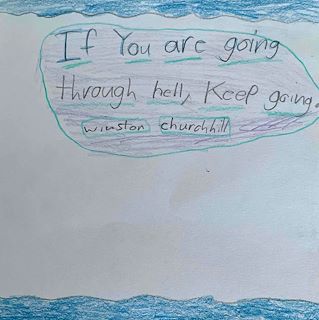 If You are going
through hell, Keep going.
winston churchhill